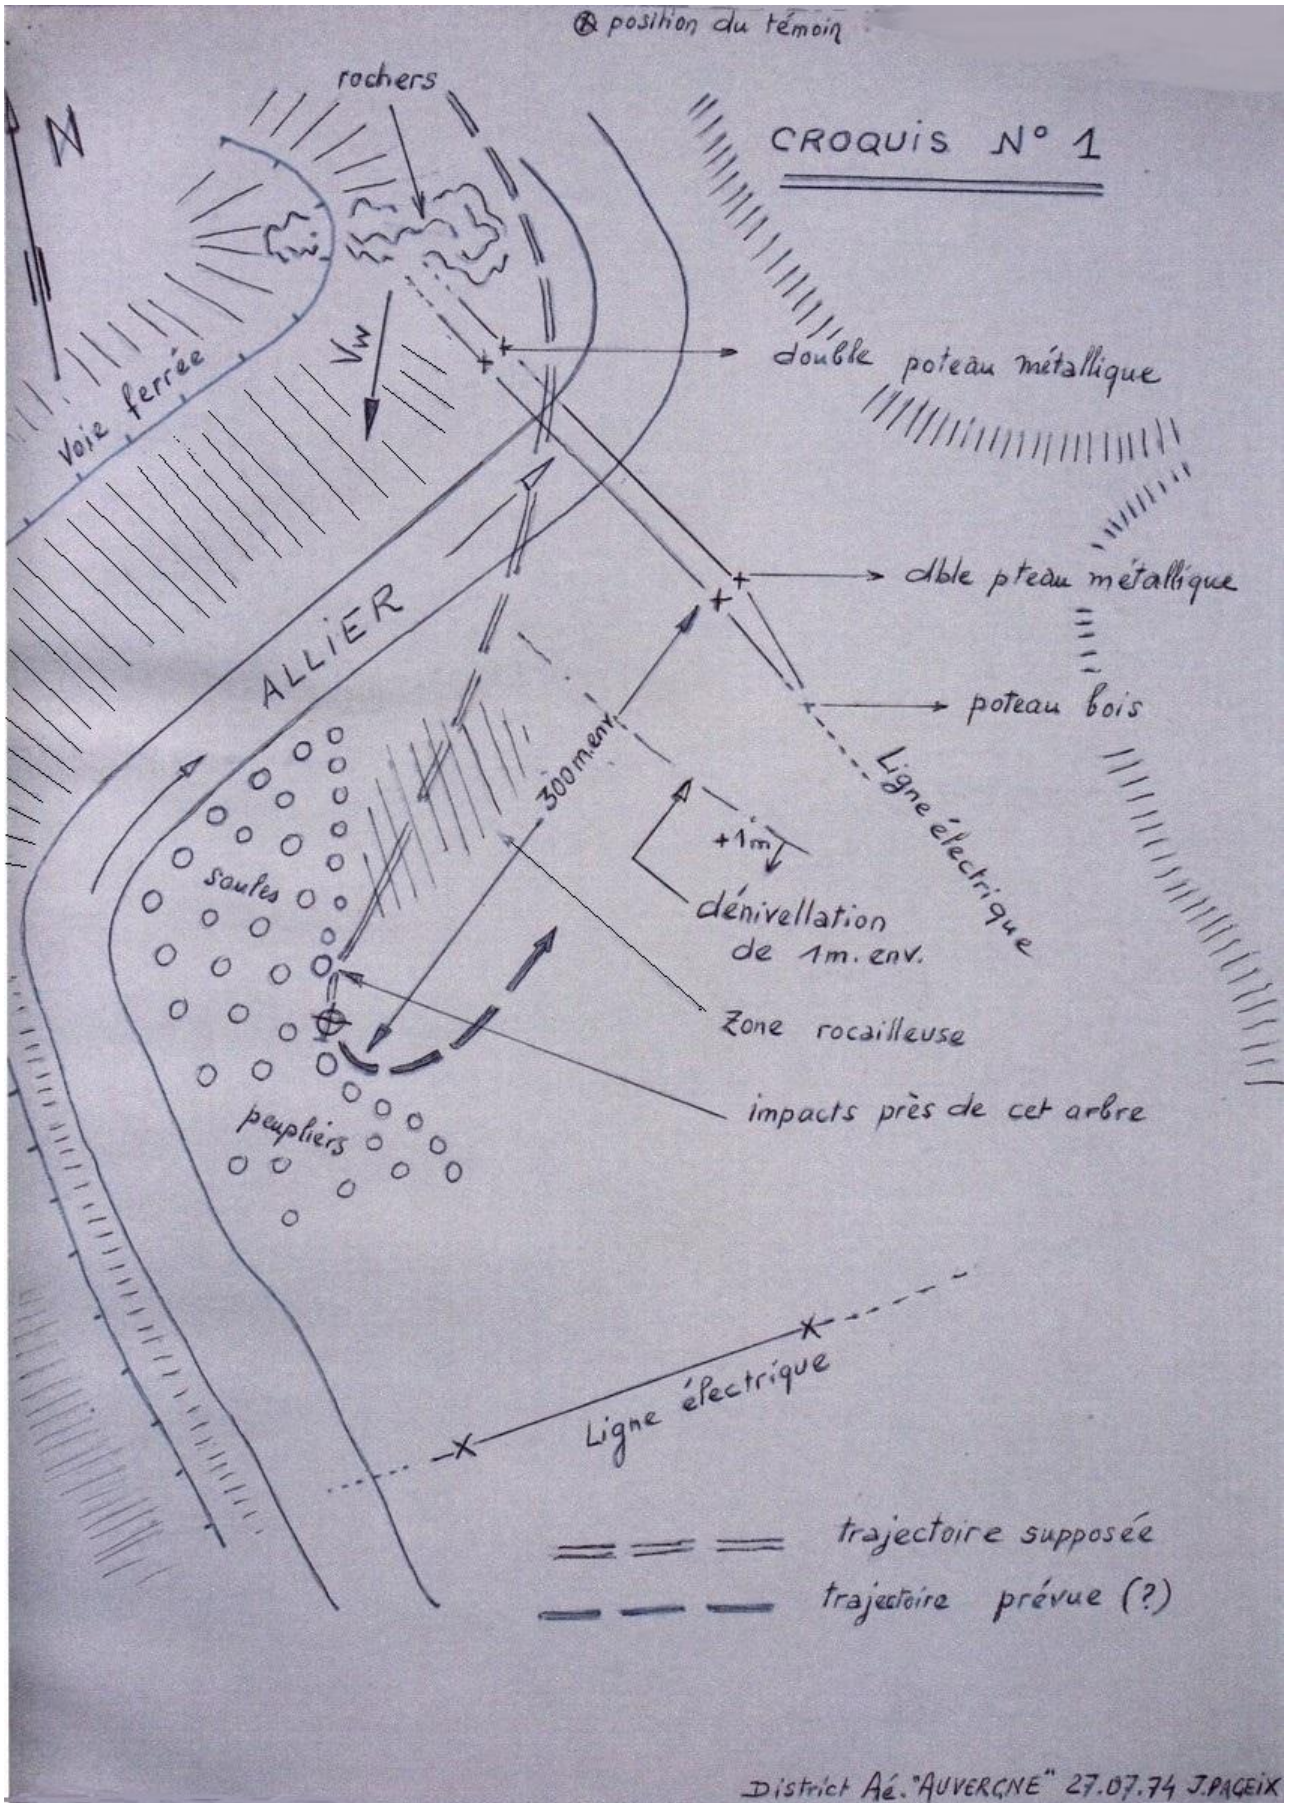 position du témoin
rochers
CROQUIS N° 1
N
Vw
Voie ferrée
double poteau métallique
dble pteau métallique
ALLIER
poteau bois
Ligne électrique
300m.env.
+1m
saules
dénivellation
de 1m. env.
Zone rocailleuse
impacts près de cet arbre
peupliers
Ligne électrique
trajectoire supposée
trajectoire prévue (?)
District Aé. "AUVERGNE" 27.07.74 J.PAGEIX